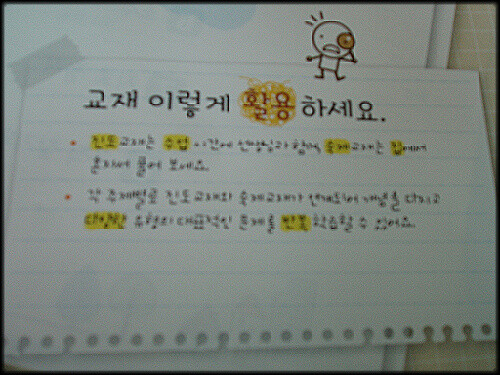 교재 이렇게 활용 하세요.
진도교재는 수업 시간에 선생님과 함께, 숙제교재는 집에서
혼자서 풀어 보세요.
각 주제별로 진도교재와 숙제교재가 연계되어 개념을 다지고
다양한 유형의 대표적인 문제를 반복 학습할 수 있어요.